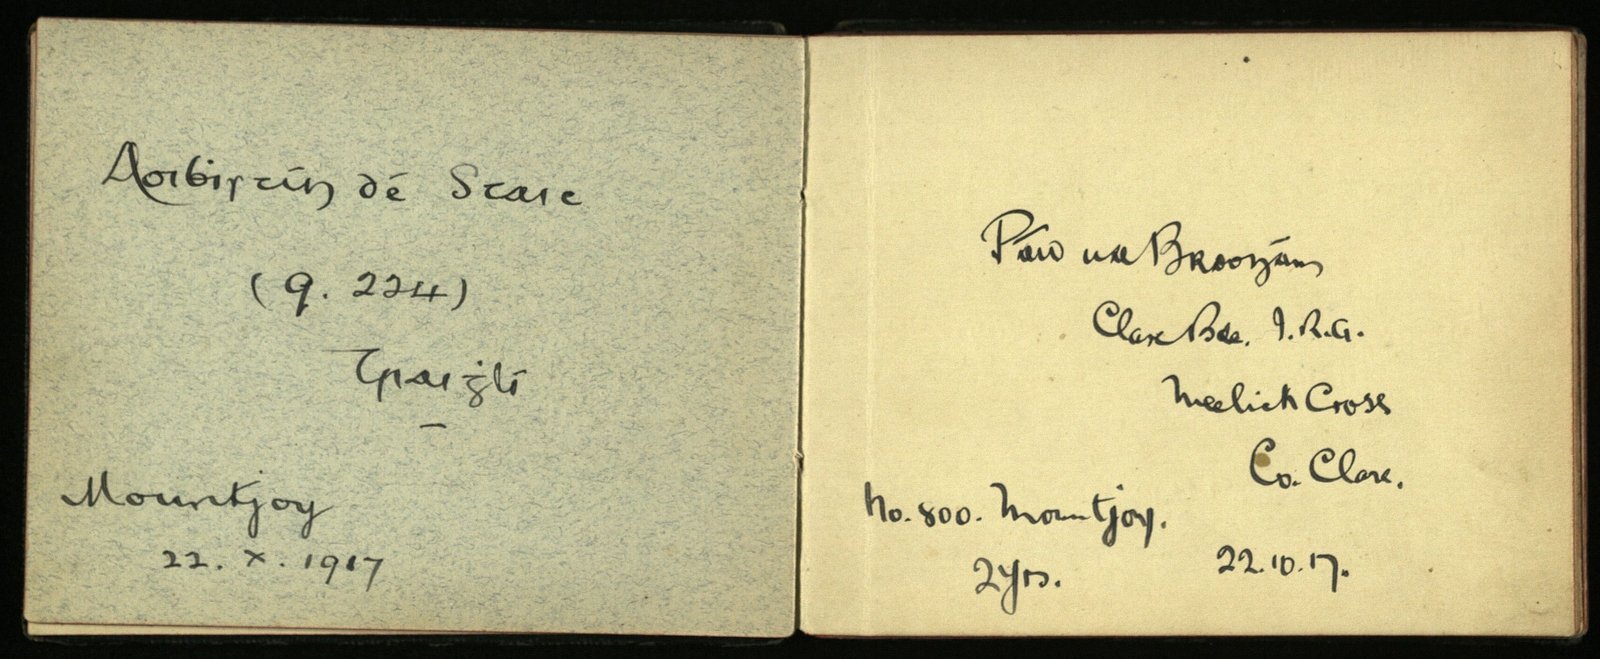 Aoibistín dé Staic
(9. 224)
Traiġlí
Mountjoy
22. X. 1917
ua Braonáin
Clare Bde. I.R.A.
Meelick Cross
Co. Clare.
No. 800. Mountjoy.
2yrs. 22.10.17.